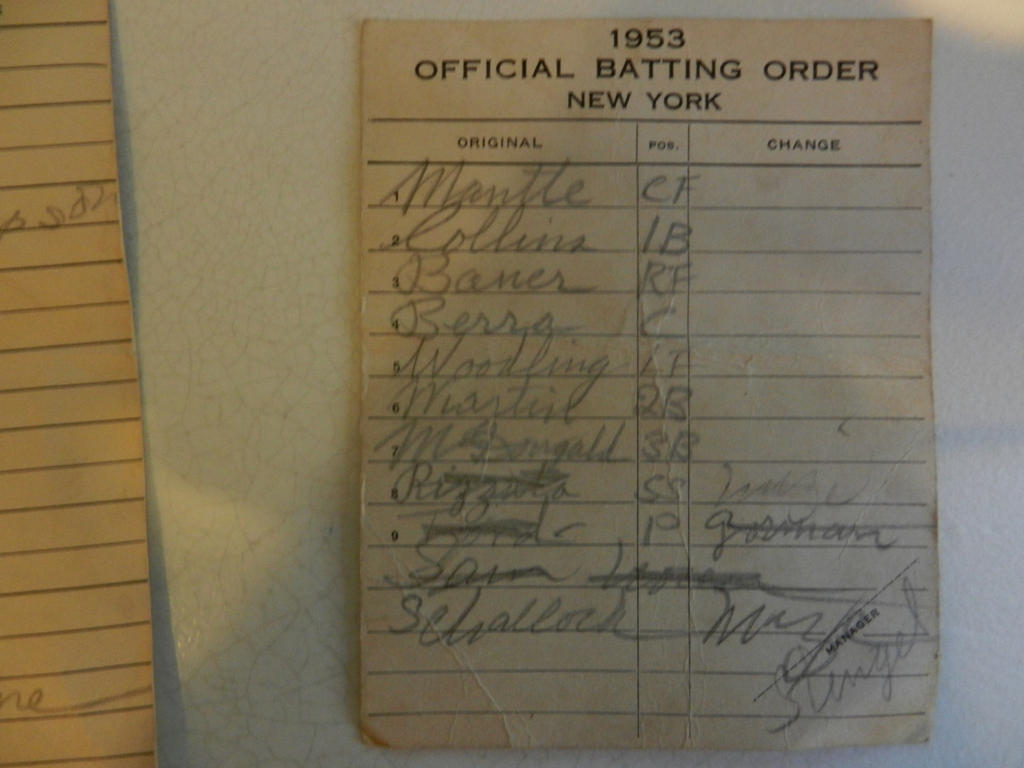 1953
OFFICIAL BATTING ORDER
NEW YORK
ORIGINAL POS. CHANGE
1 Mantle CF
2 Collins 1B
3 Bauer RF
4 Berra C
5 Woodling LF
6 Martin 2B
7 McDougald 3B
8 Rizzuto SS
9 Ford P Gorman
Schallock
MANAGER
Stengel